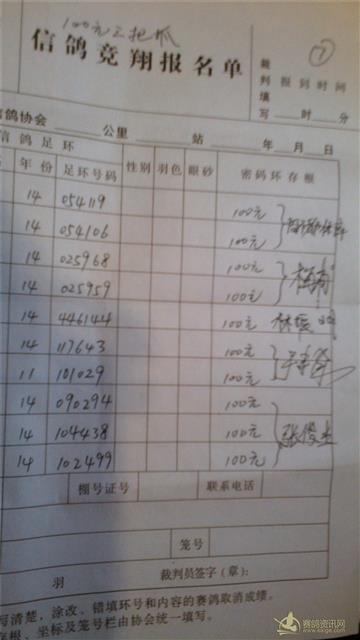 100元三把抓
①
信鸽竞翔报名单
裁判填写 报到时间
时 分
信鸽协会 公里 站 年 月 日
信鸽足环
年份 足环号码 性别 羽色 眼砂 密码环存根
14 054119 100元
14 054106 100元
14 025968 100元
14 025959 100元
14 446144 100元
14 117643 100元
11 101029 100元
14 090294 100元
14 104438 100元 张俊
14 102499 100元
棚号证号 联系电话
笼号
羽 裁判员签字（章）：
写清楚，涂改、错填环号和内容的赛鸽取消成绩。
存根、坐标及笼号栏由协会统一填写。
赛鸽资讯网
www.saige.com